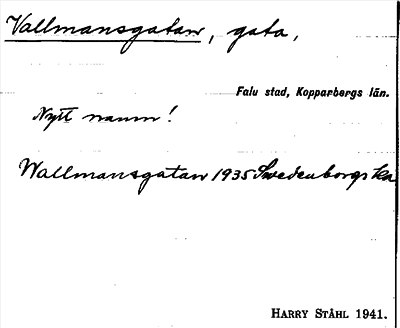 Vallmansgatan, gata,
Falu stad, Kopparbergs län.
Nytt namn!
Wallmansgatan 1935 Swedenborgs ka
HARRY STÅHL 1941.